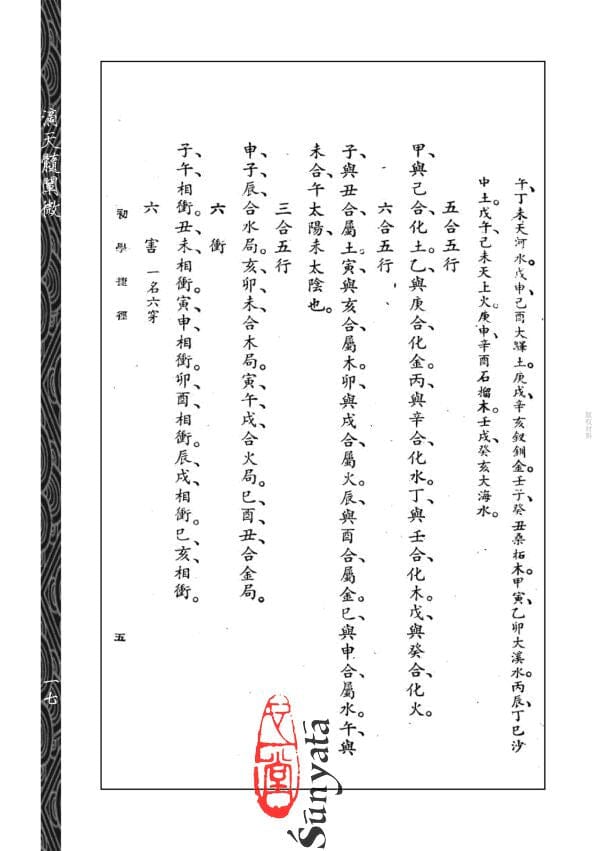 午、丁未天河水。戊申、己酉大驛土。庚戌、辛亥釵釧金。壬子、癸丑桑柘木。甲寅、乙卯大溪水。丙辰、丁巳沙
中土。戊午、己未天上火。庚申、辛酉石榴木。壬戌、癸亥大海水。
五合五行
甲與己合化土、乙與庚合化金、丙與辛合化水、丁與壬合化木、戊與癸合化火。
六合五行
子與丑合屬土、寅與亥合屬木。卯與戌合屬火。辰與酉合屬金。巳與申合屬水。午與
未合、午太陽、未太陰也。
三合五行
申、子、辰、合水局。亥、卯、未、合木局。寅、午、戌、合火局。巳、酉、丑、合金局。
六衝
子、午、相衝。丑、未、相衝。寅、申、相衝。卯、酉、相衝。辰、戌、相衝。巳、亥、相衝。
六害 一名六穿
初學捷徑
五
滴天髓闡微
一七
Śūnyatā